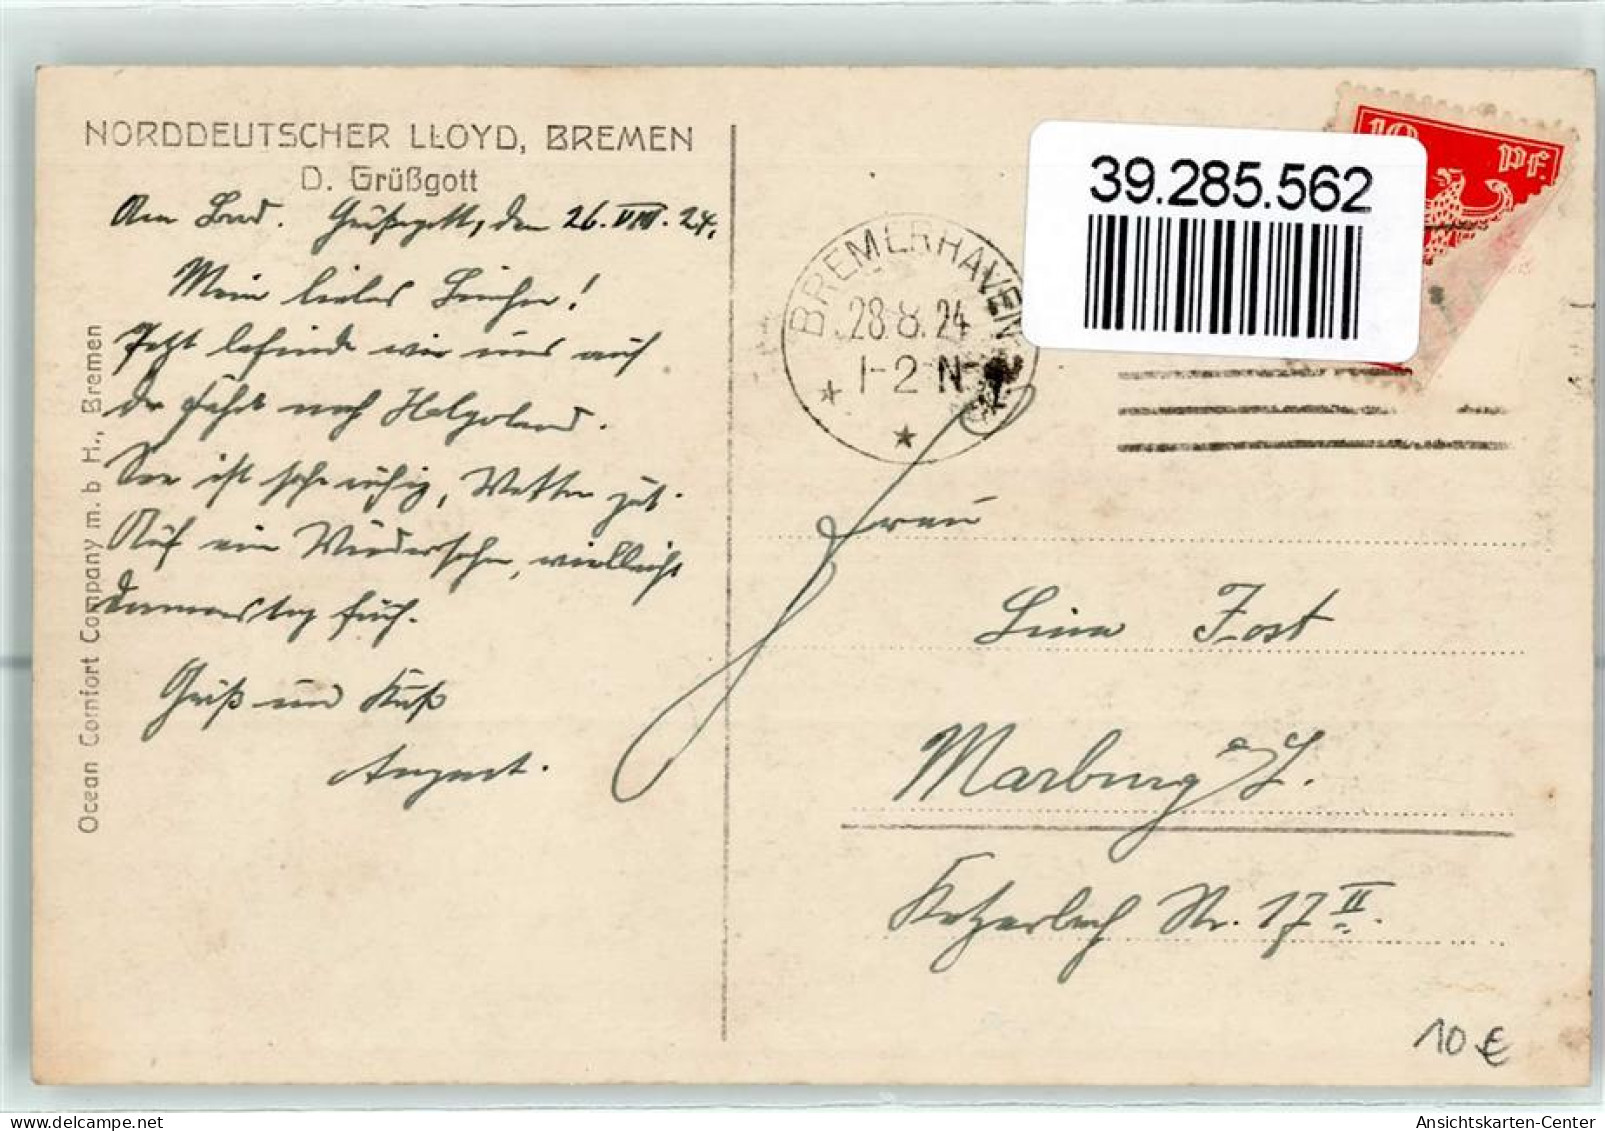 NORDDEUTSCHER LLOYD, BREMEN
D. Grüßgott
An Bord. Grüßgott, den 26. VIII. 24.
Mein liebes Linchen!
Jetzt befinde wir uns auf
der Fahrt nach Helgoland.
See ist sehr ruhig, Wetter gut.
Auf ein Wiedersehn, vielleicht
Donnerstag früh.
Gruß und Kuß
August.
Ocean Comfort Company m. b H., Bremen
39.285.562
10 Pf.
BREMERHAVEN
28.8.24
1-2 N
Frau
Lina Fost
Marburg a/L.
Ketzerbach Nr. 17 II.
10 €
Ansichtskarten-Center